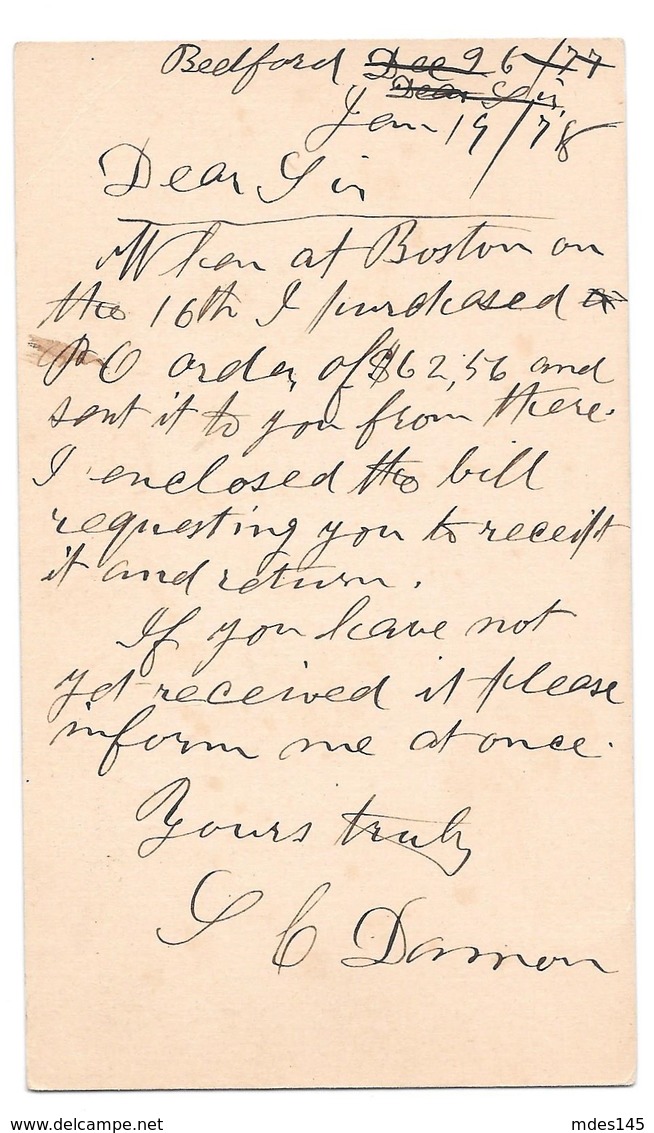 Bedford Dec 26/77
Dear Sir,
Jan 19/78
Dear Sir
When at Boston on
the 16th I purchased a
P O order of $62,56 and
sent it to you from there.
I enclosed the bill
requesting you to receipt
it and return.
If you have not
yet received it please
inform me at once.
Yours truly
S C Damon
delcampe.net
mdes145